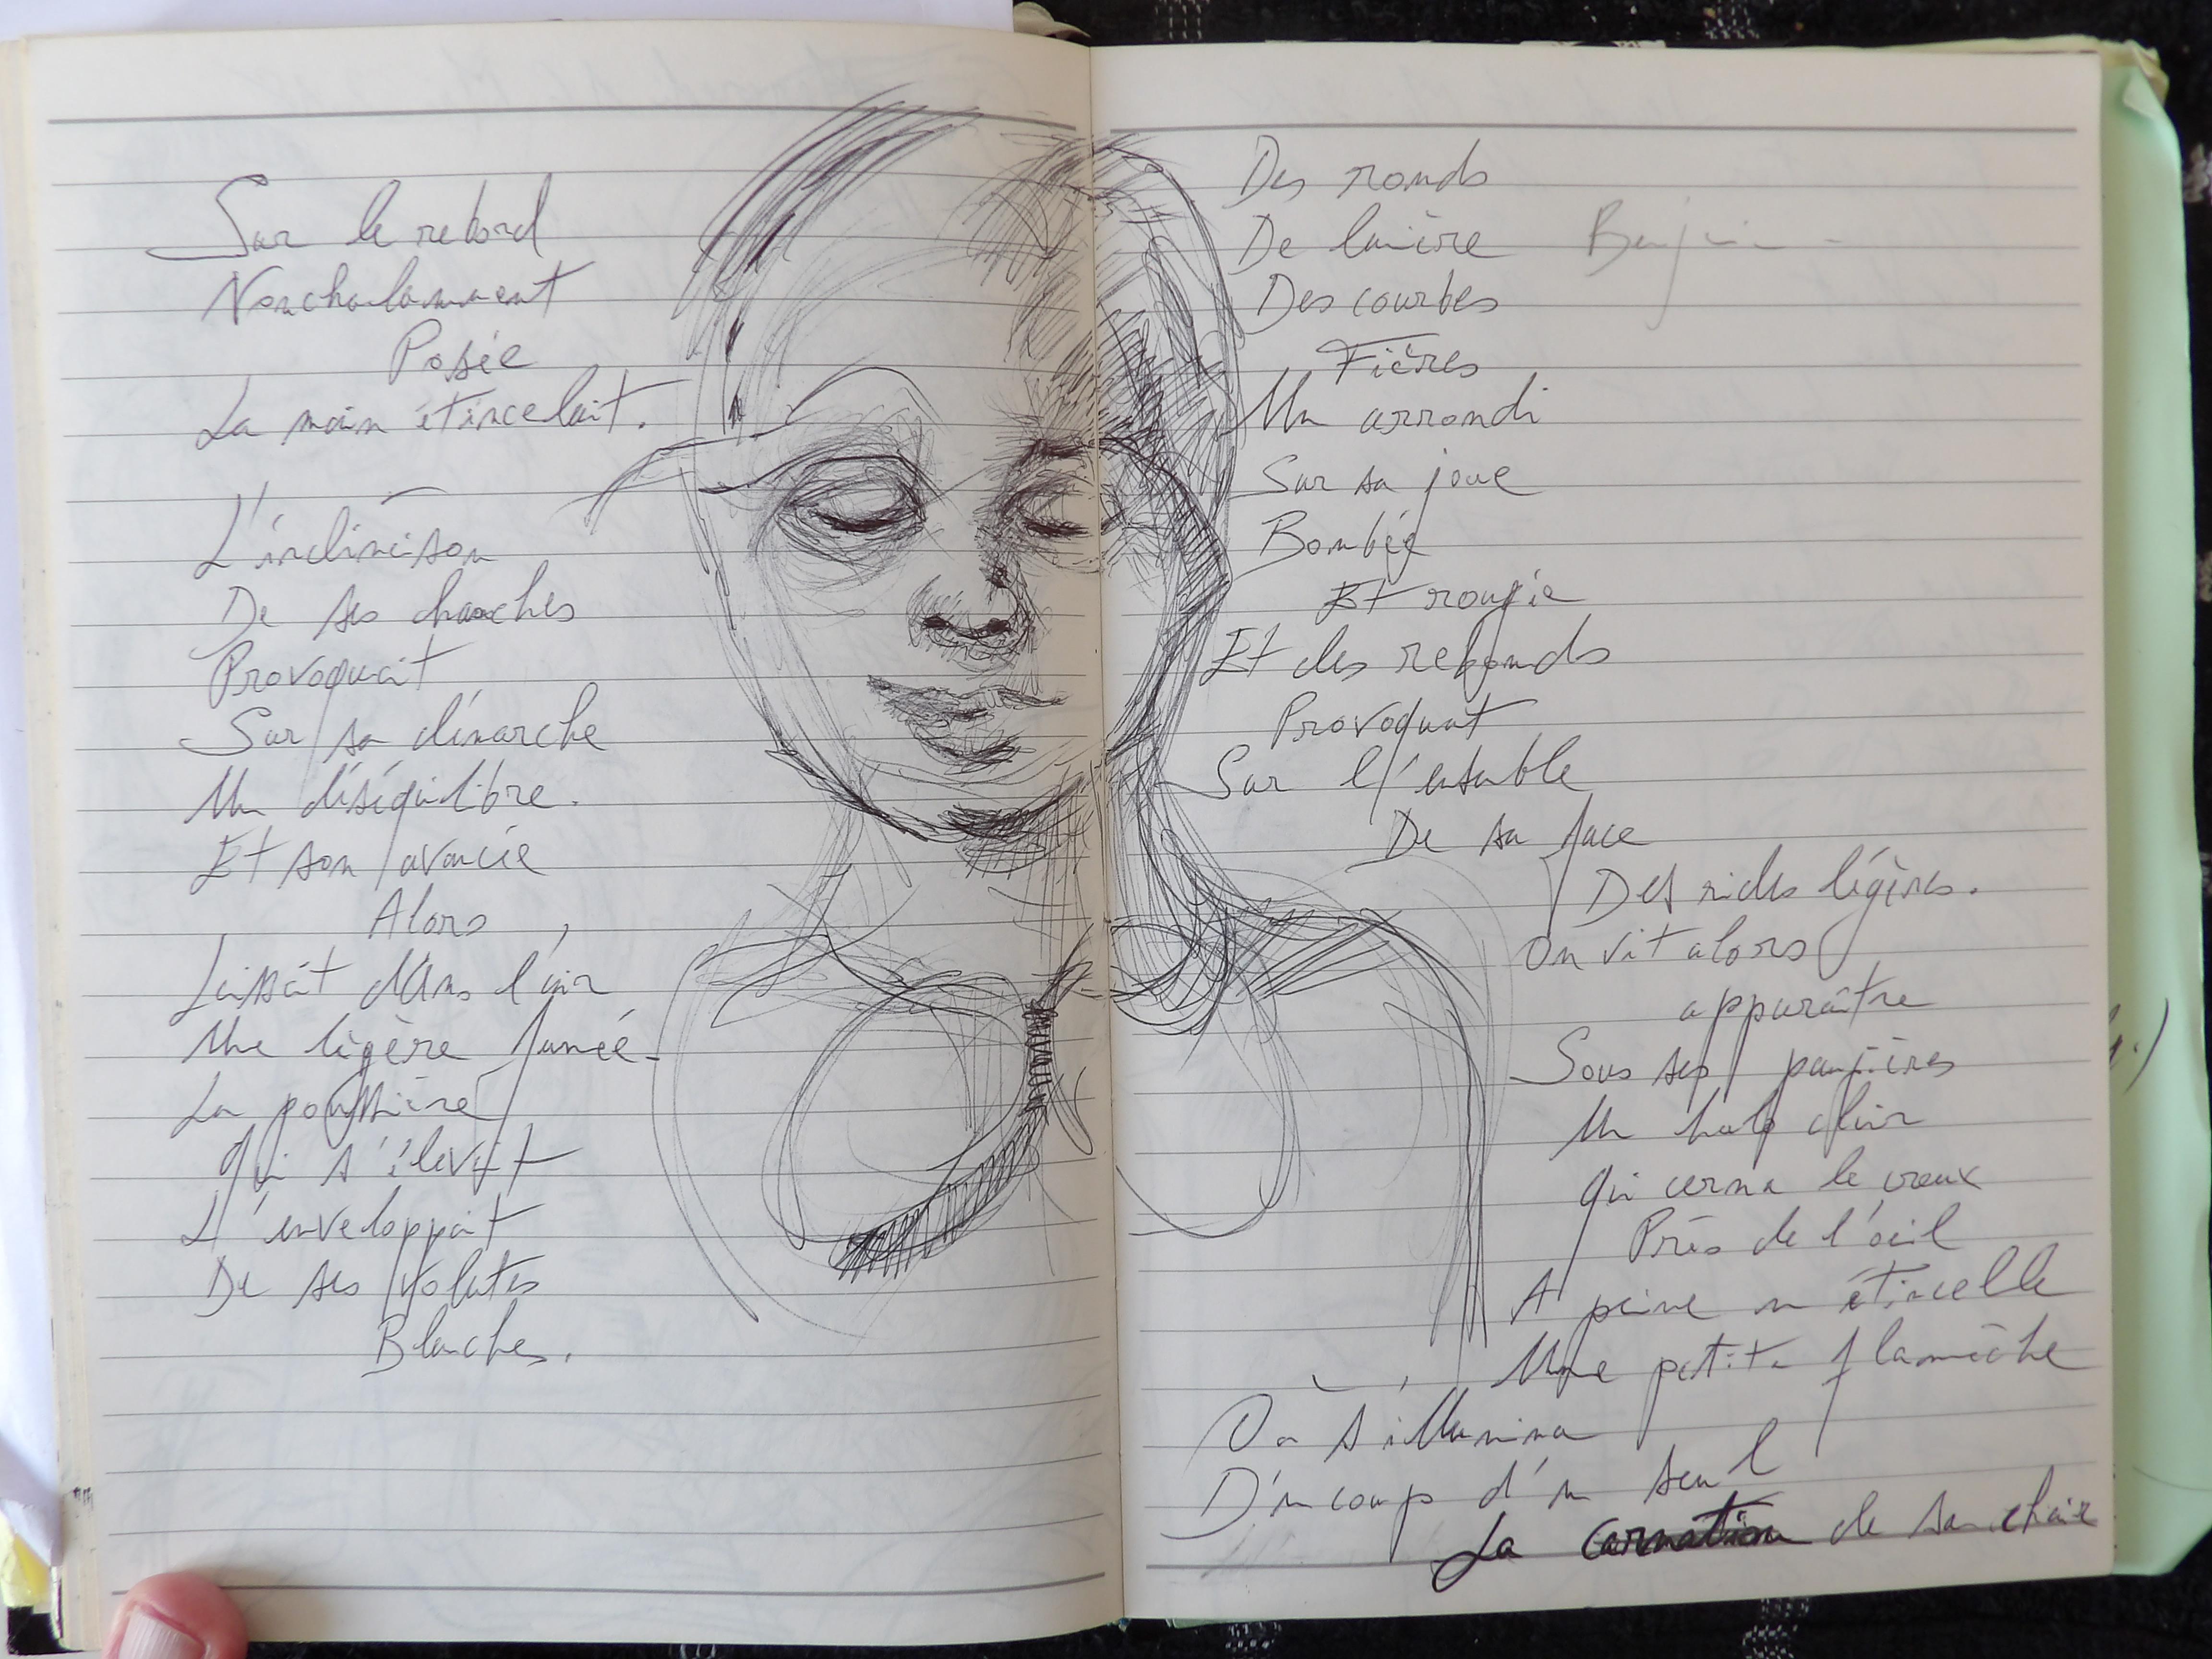 Sur le rebord
Nonchalamment
Posée
La main étincelait.
L'inclinaison
De ses hanches
Provoquait
Sur sa démarche
Un déséquilibre.
Et son avancée
Alors
Laissait dans l'air
Une légère fumée
La poussière
Qui s'élevait
L'enveloppait
De ses volutes
Blanches.
Des ronds
De lumière
Des courbes
Fières
Un arrondi
Sur sa joue
Bombée
Et rougie
Et des rebonds
Provoquant
Sur l'ensemble
De sa face
Des rides légères.
On vit alors
apparaître
Sous ses paupières
Un halo clair
Qui cerna le creux
Près de l'œil
A peine un étincelle
Une petite flamèche
Où s'illumina
D'un coup d'un seul
La carnation de sa chair